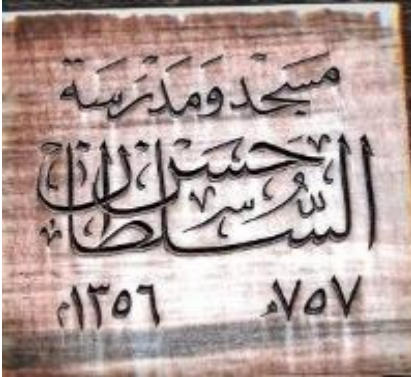 مسجد ومدرسة
السلطان حسن
٧٥٧ه ١٣٥٦م